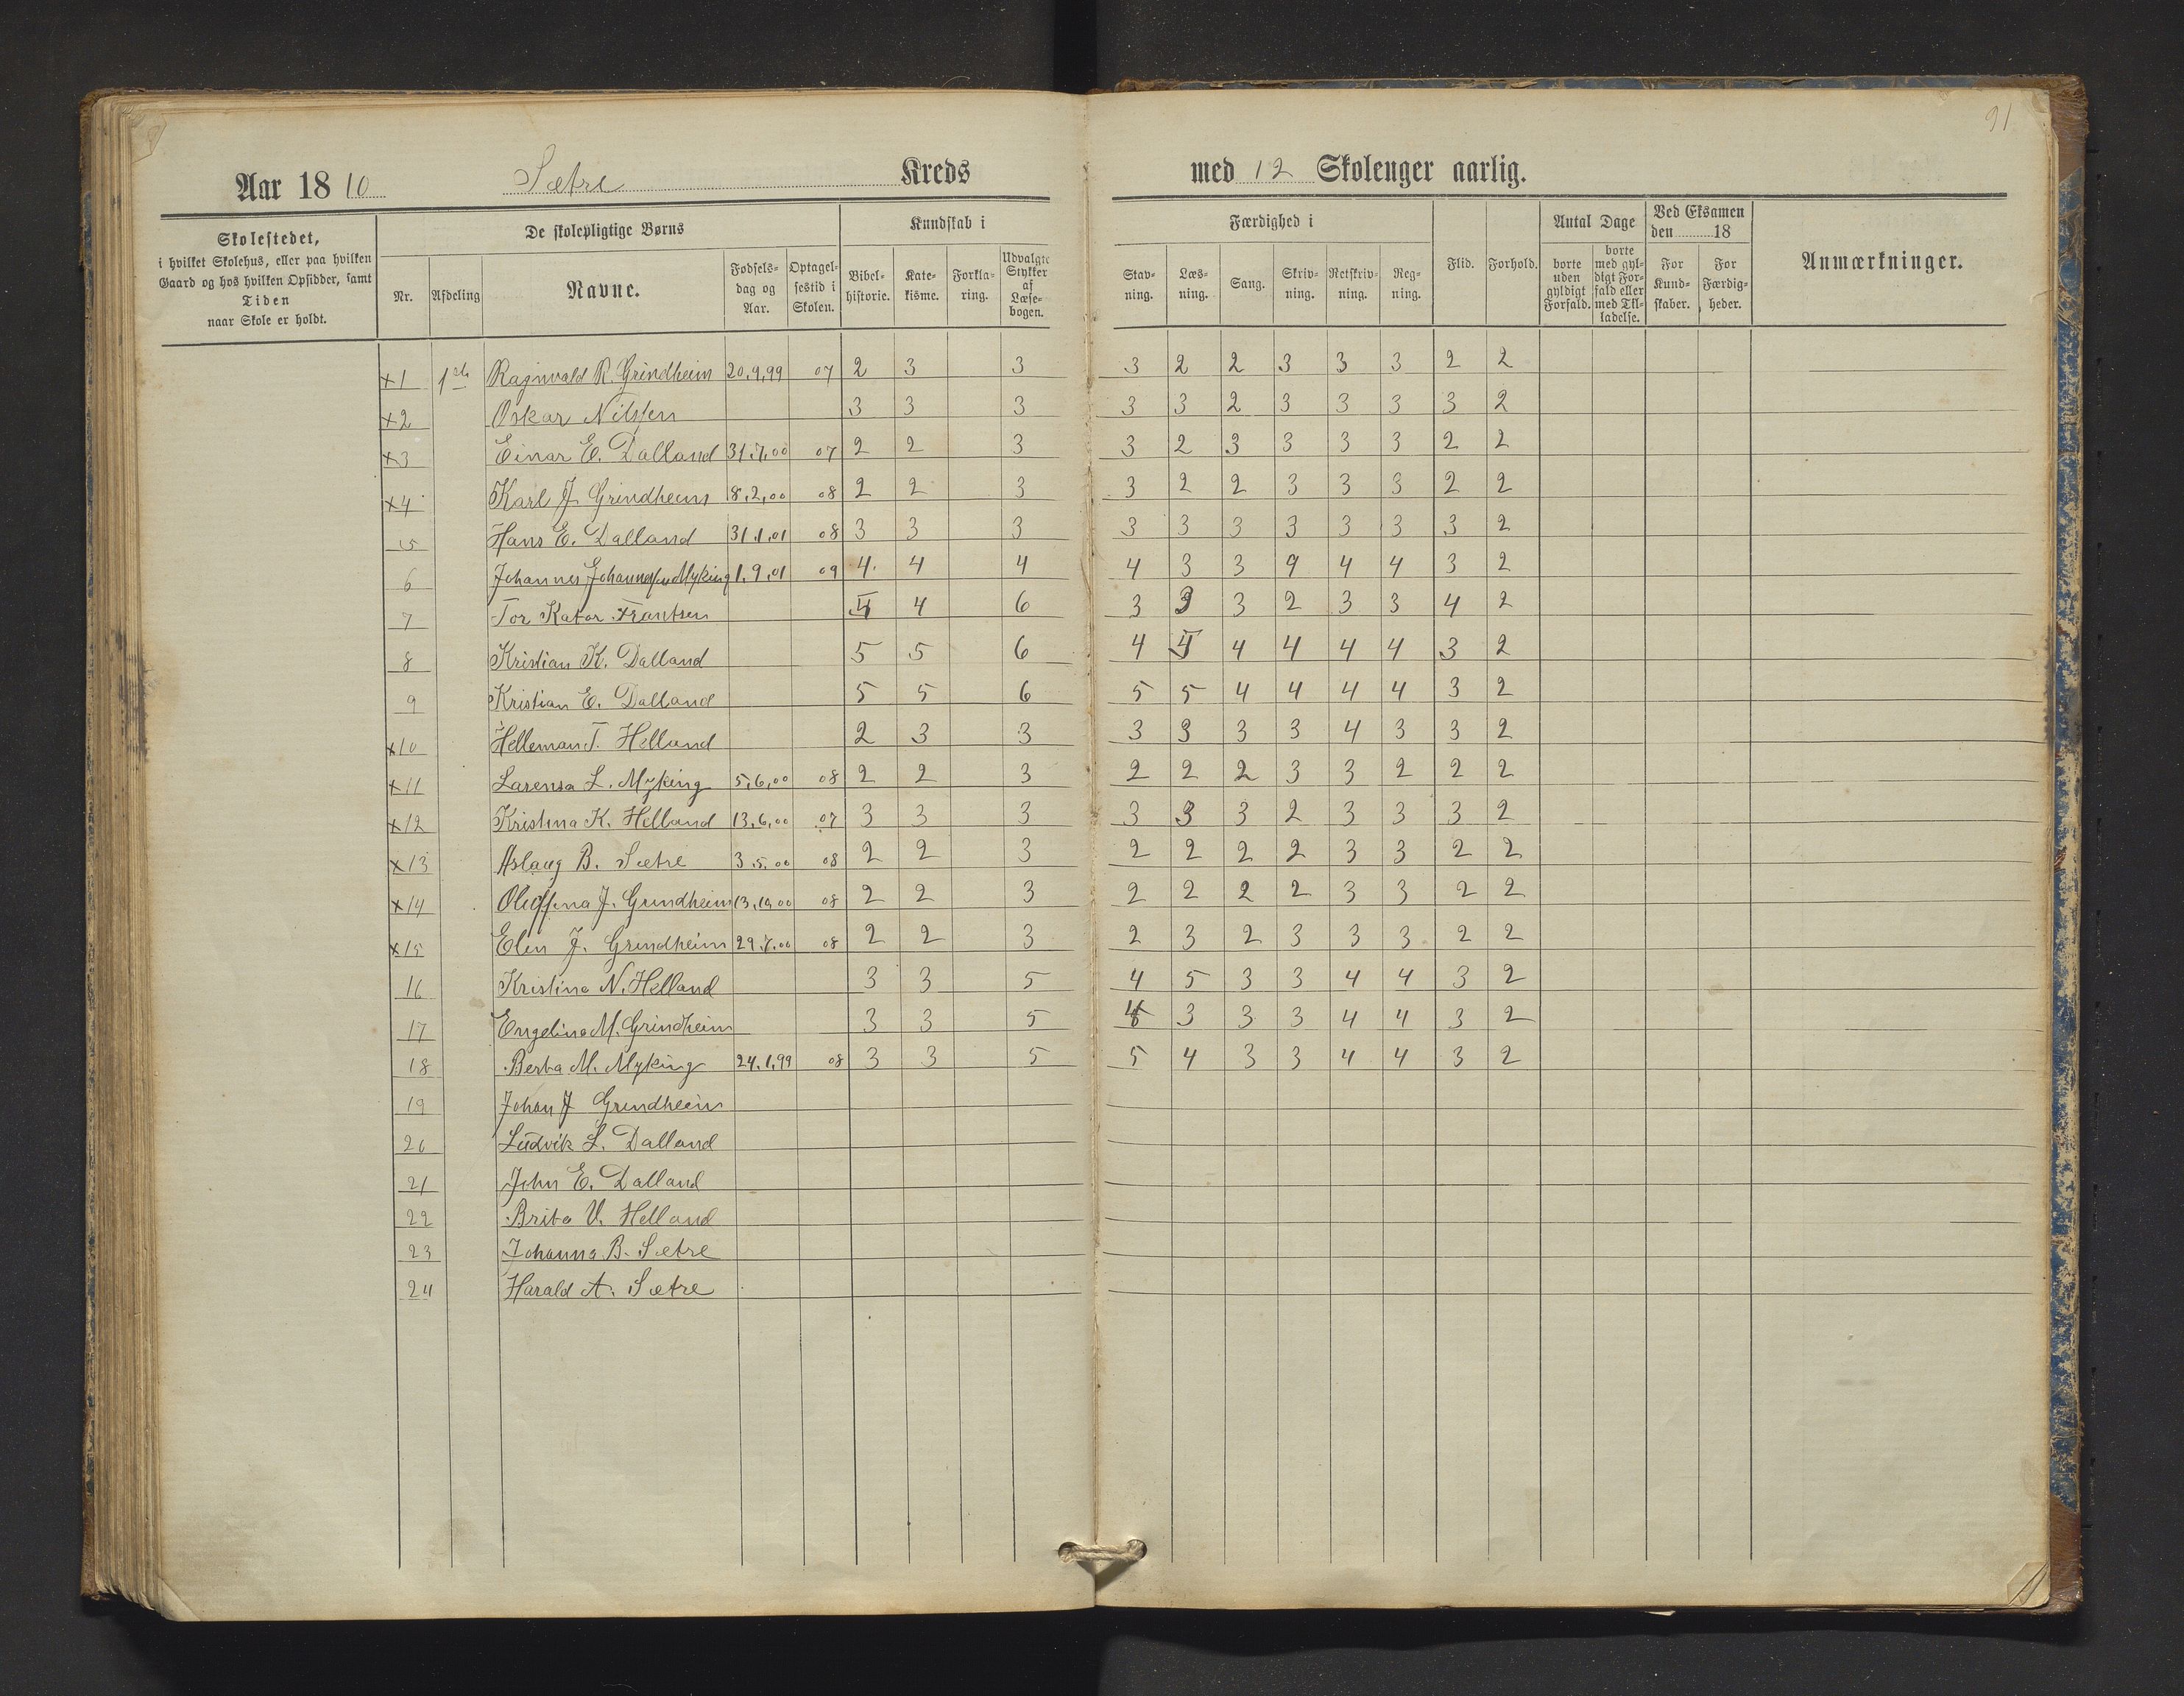 91
Aar 1810 Sætre Kreds med 12 Skoleuger aarlig.
Skolestedet, i hvilket Skolehus, eller paa hvilken Gaard og hos hvilken Opsidder, samt Tiden naar Skole er holdt.
De skolepligtige Børns
Nr. Afdeling Navne. Fødsels- dag og Aar. Optagel- sestid i Skolen.
Kundskab i
Bibel- historie. Kate- kisme. Forkla- ring. Udvalgte Stykker af Læse- bogen.
Færdighed i
Stav- ning. Læs- ning. Sang. Skriv- ning. Retskriv- ning. Reg- ning.
Flid. Forhold.
Antal Dage
borte uden gyldigt Forfald. borte med gyl- digt For- fald eller med Til- ladelse.
Ved Eksamen den 18
For Kund- skaber. For Færdig- heder.
Anmærkninger.
x1 Ragnvald R. Grindheim 20.9.99 07 2 3 3 3 2 2 3 3 3 2 2
x2 Oskar Nilssen 3 3 3 3 3 2 3 3 3 3 2
x3 Einar E. Dalland 31.7.00 07 2 2 3 3 2 3 3 3 3 2 2
x4 Karl J. Grindheim 8,2,00 08 2 2 3 3 2 2 3 3 3 2 2
5 Hans E. Dalland 31.1.01 08 3 3 3 3 3 3 3 3 3 3 2
6 Johannes Johannessen Myking 1.9.01 09 4. 4 4 4 3 3 9 4 4 3 2
7 Tor Frantsen 4 4 6 3 3 3 2 3 3 4 2
8 Kristian K. Dalland 5 5 6 4 4 4 4 4 3 2
9 Kristian E. Dalland 5 5 6 5 5 4 4 4 4 3 2
x10 Helleman T. Helland 2 3 3 3 3 3 3 4 3 3 2
x11 Larensa L. Myking 5,6,00 08 2 2 3 2 2 2 3 3 2 2 2
x12 Kristina K. Helland 13,6,00 07 3 3 3 3 3 3 2 3 3 3 2
x13 Aslaug B. Sætre 3.5.00 08 2 2 3 2 2 2 2 3 3 2 2
x14 J. Grindheim 13.10.00 08 2 2 3 2 2 2 2 3 3 2 2
x15 Elen J. Grindheim 29.7.00 08 2 2 3 2 3 2 3 3 3 2 2
16 Kristina N. Helland 3 3 5 4 5 3 3 4 4 3 2
17 Engelina M. Grindheim 3 3 5 4 3 3 3 4 4 3 2
18 Berta M. Myking 24.1.99 08 3 3 5 5 4 3 3 4 4 3 2
19 Johan J Grindheim
20 Ludvik L. Dalland
21 John E. Dalland
22 Brita V. Helland
23 Johanna B. Sætre
24 Harald A. Sætre